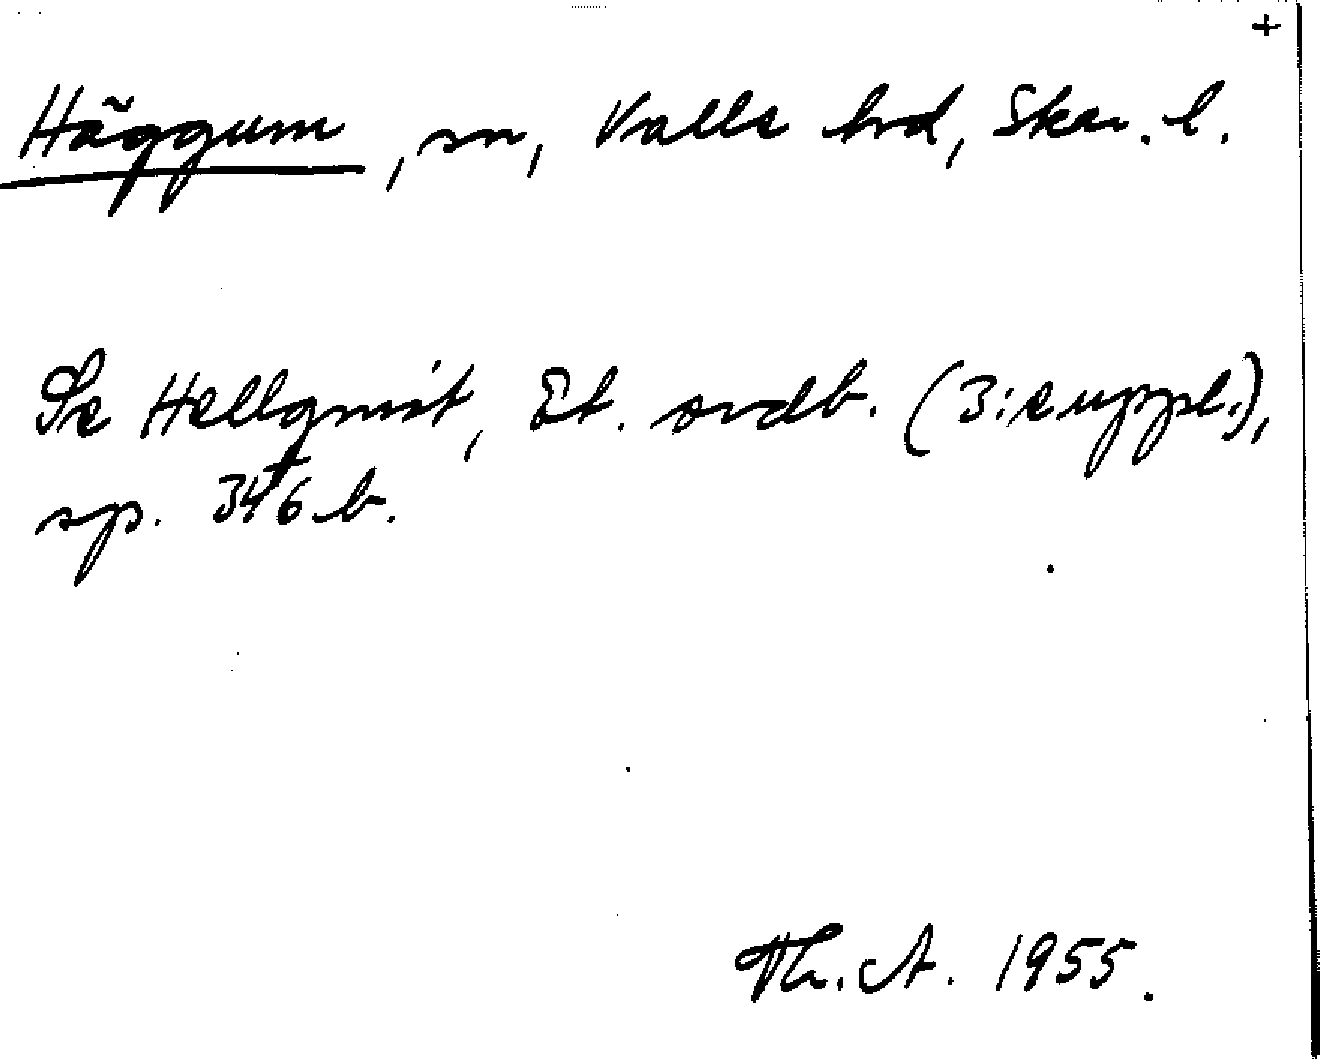 +
Häggum, sn, Valle hrd, Skar. l.
Se Hellquist, Et. ordb. (3:e uppl.),
sp. 346 b.
Th. A. 1955.